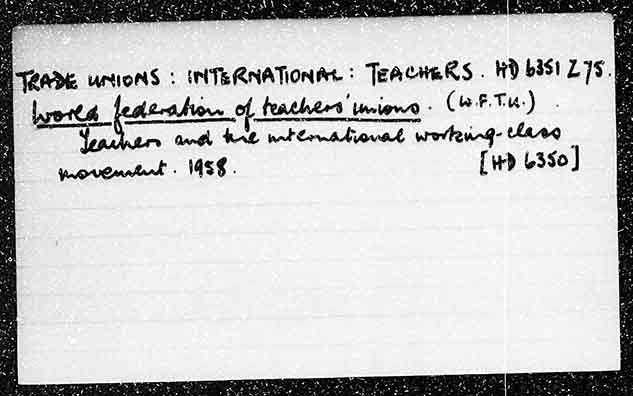 TRADE UNIONS : INTERNATIONAL : TEACHERS. HD 6351 Z 75.
World federation of teachers' unions. (W.F.T.U.)
Teachers and the international working-class
movement. 1958. [HD 6350]